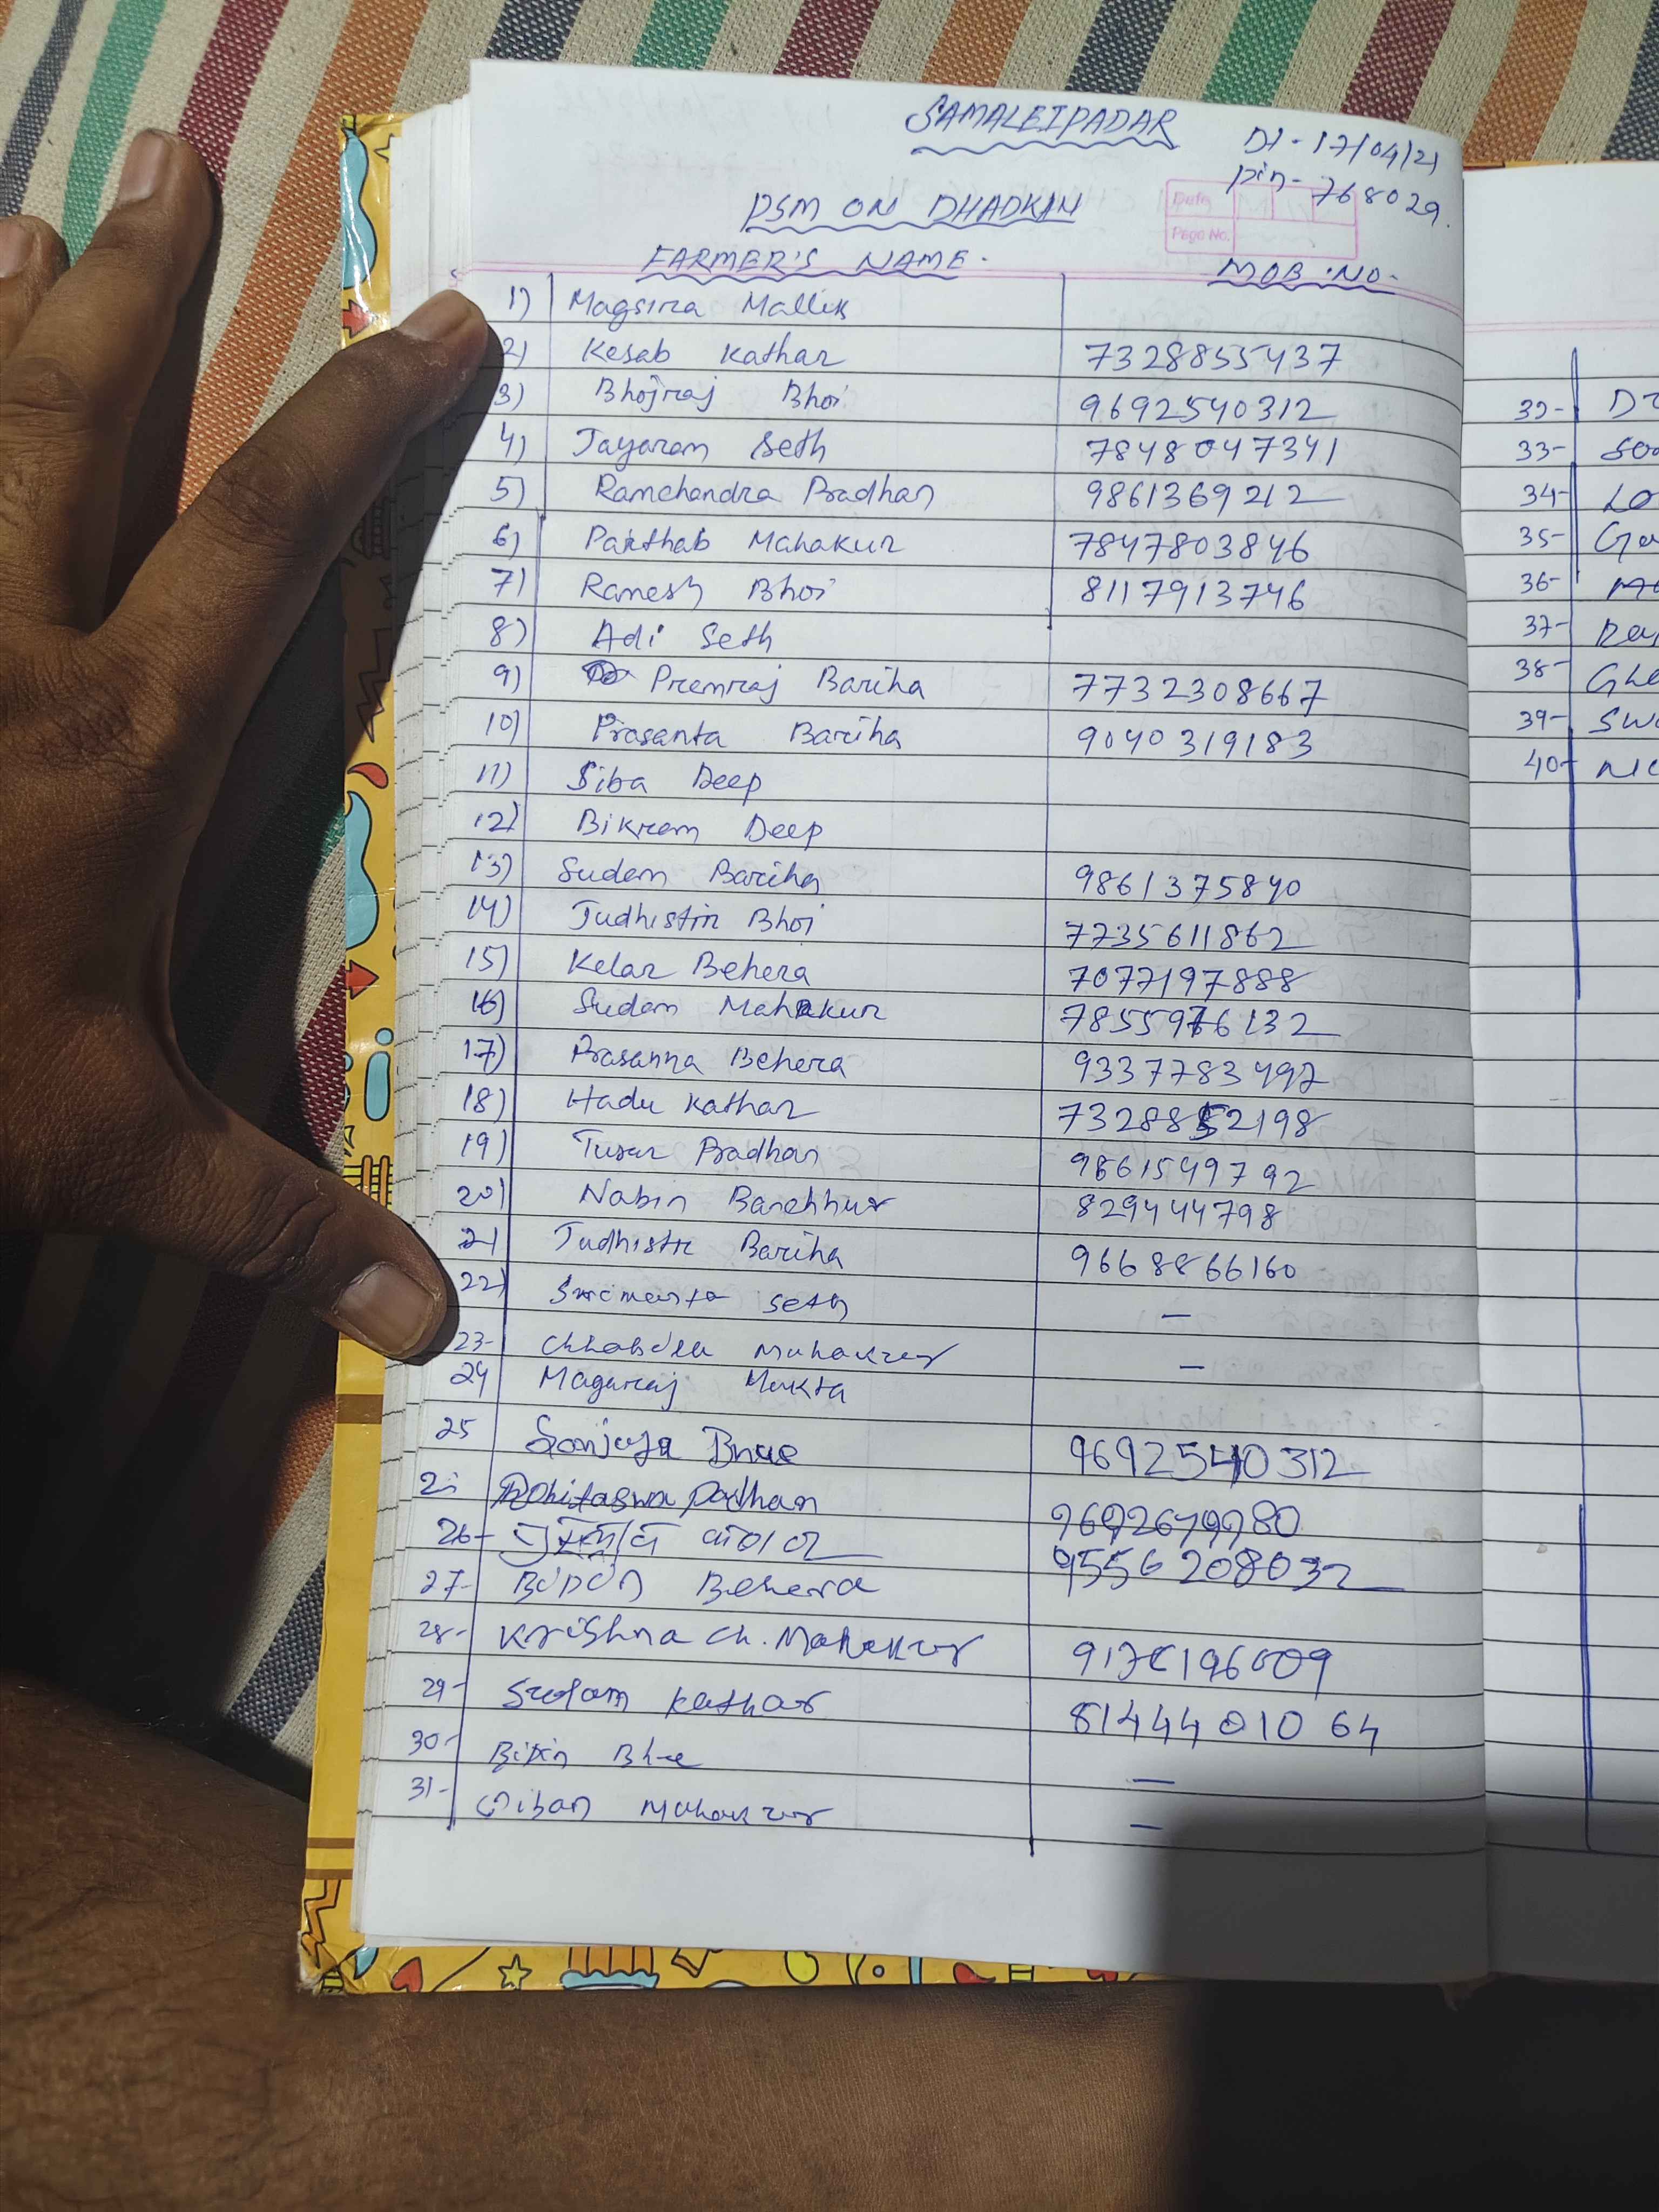 SAMALEIPADAR
Dt-17/04/21
Pin-768029.
PSM ON DHADKIN
Date
Page No.
FARMER'S NAME. MOB.NO.
1) Magsira Mallik
2) Kesab Kathar 7328855437
3) Bhojraj Bhoi 9692540312
4) Jayaram Seth 7848047341
5) Ramchandra Pradhan 9861369212
6) Parthab Mahakur 7847803846
7) Ramesh Bhoi 8117913746
8) Adi Seth
9) Premraj Bariha 7732308667
10) Prasanta Bariha 9040319183
11) Siba Deep
12) Bikram Deep
13) Sudam Bariha 9861375840
14) Judhistir Bhoi 7735611862
15) Kelar Behera 7077197888
16) Sudam Mahakur 7855976132
17) Prasanna Behera 9337783497
18) Hadu Kathar 7328852198
19) Tusar Pradhan 9861549792
20) Nabin Banchhur 829444798
21 Judhistir Bariha 9668866160
22) Srimanta Seth -
23- Chhabila Mahakur -
24 Magaraj Mukta
25 Sanjaya Bhue 9692540312
2: Rohitaswa Padhan 9692679980
26- 9556208032
27- Bipin Behera
28- Krishna Ch. Mahakur
29- Sudam Kathar 8144401064
30- Bipin Bhue -
31- Mahakur -
32-
33-
34-
35-
36-
37-
38-
39-
40-